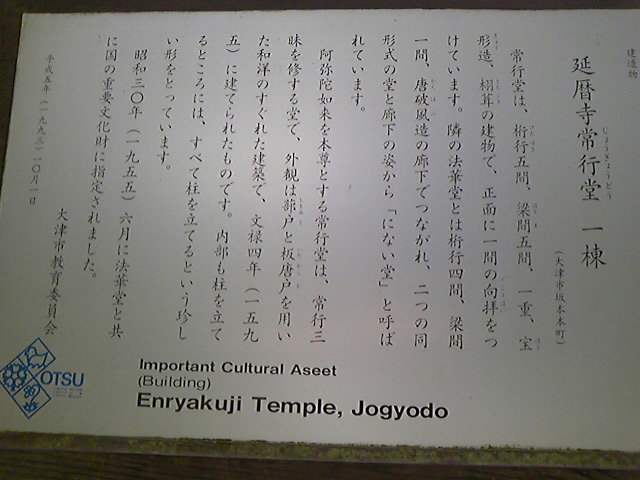 建造物
延暦寺常行堂 一棟
じょうぎょうどう
（大津市坂本本町）
常行堂は、桁行五間、梁間五間、一重、宝
形造、栩葺の建物で、正面に一間の向拝をつ
けています。隣の法華堂とは桁行四間、梁間
一間、唐破風造の廊下でつながれ、二つの同
形式の堂と廊下の姿から「にない堂」と呼ば
れています。
阿弥陀如来を本尊とする常行堂は、常行三
昧を修する堂で、外観は蔀戸と板唐戸を用い
た和洋のすぐれた建築で、文禄四年（一五九
五）に建てられたものです。内部も柱を立て
るところには、すべて柱を立てるという珍し
い形をとっています。
昭和三〇年（一九五五）六月に法華堂と共
に国の重要文化財に指定されました。
平成五年（一九九三）一〇月一日
大津市教育委員会
OTSU
Important Cultural Aseet
(Building)
Enryakuji Temple, Jogyodo